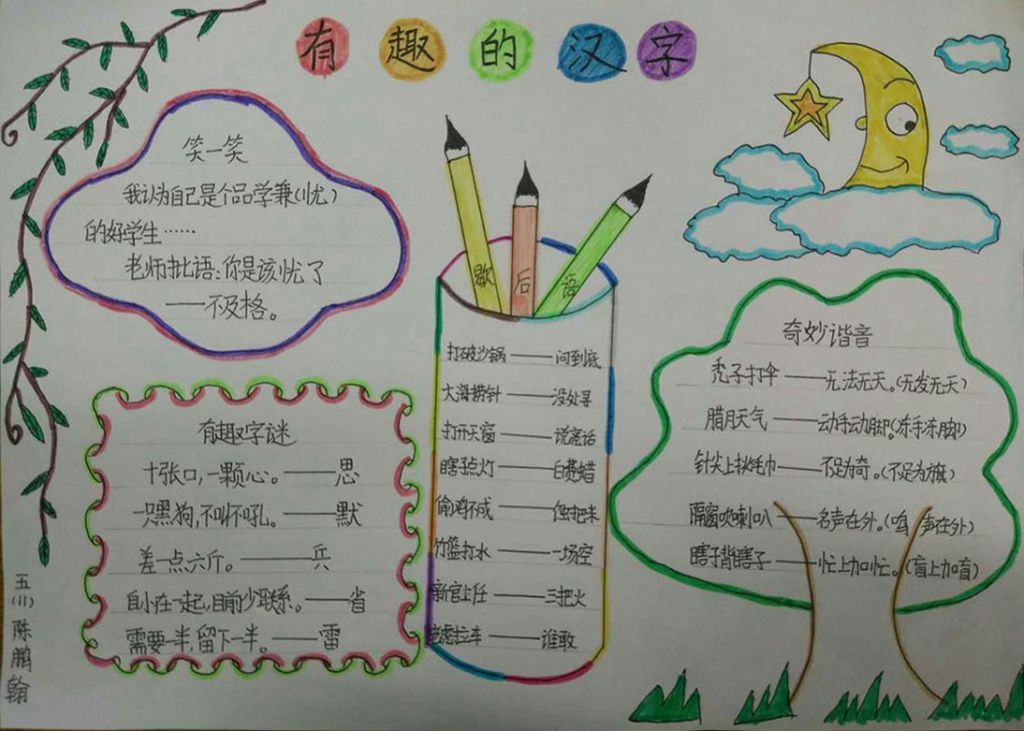 有趣的汉字
笑一笑
我认为自己是个品学兼(忧)
的好学生……
老师批语:你是该忧了
——不及格。
有趣字谜
十张口,一颗心。——思
一只黑狗,不叫不吼。——默
差一点六斤。——兵
自小在一起,目前少联系。——省
需要一半,留下一半。——雷
歇后语
打破沙锅——问到底
大海捞针——没处寻
打开天窗——说亮话
瞎子点灯——白费蜡
偷鸡不成——蚀把米
竹篮打水——一场空
新官上任——三把火
老虎拉车——谁敢
奇妙谐音
秃子打伞——无法无天。(无发无天)
腊月天气——动手动脚。(冻手冻脚)
针尖上挑毛巾——不足为奇。(不足为旗)
隔窗吹喇叭——名声在外。(鸣声在外)
瞎子背瞎子——忙上加忙。(盲上加盲)
五(11)陈鹏翰